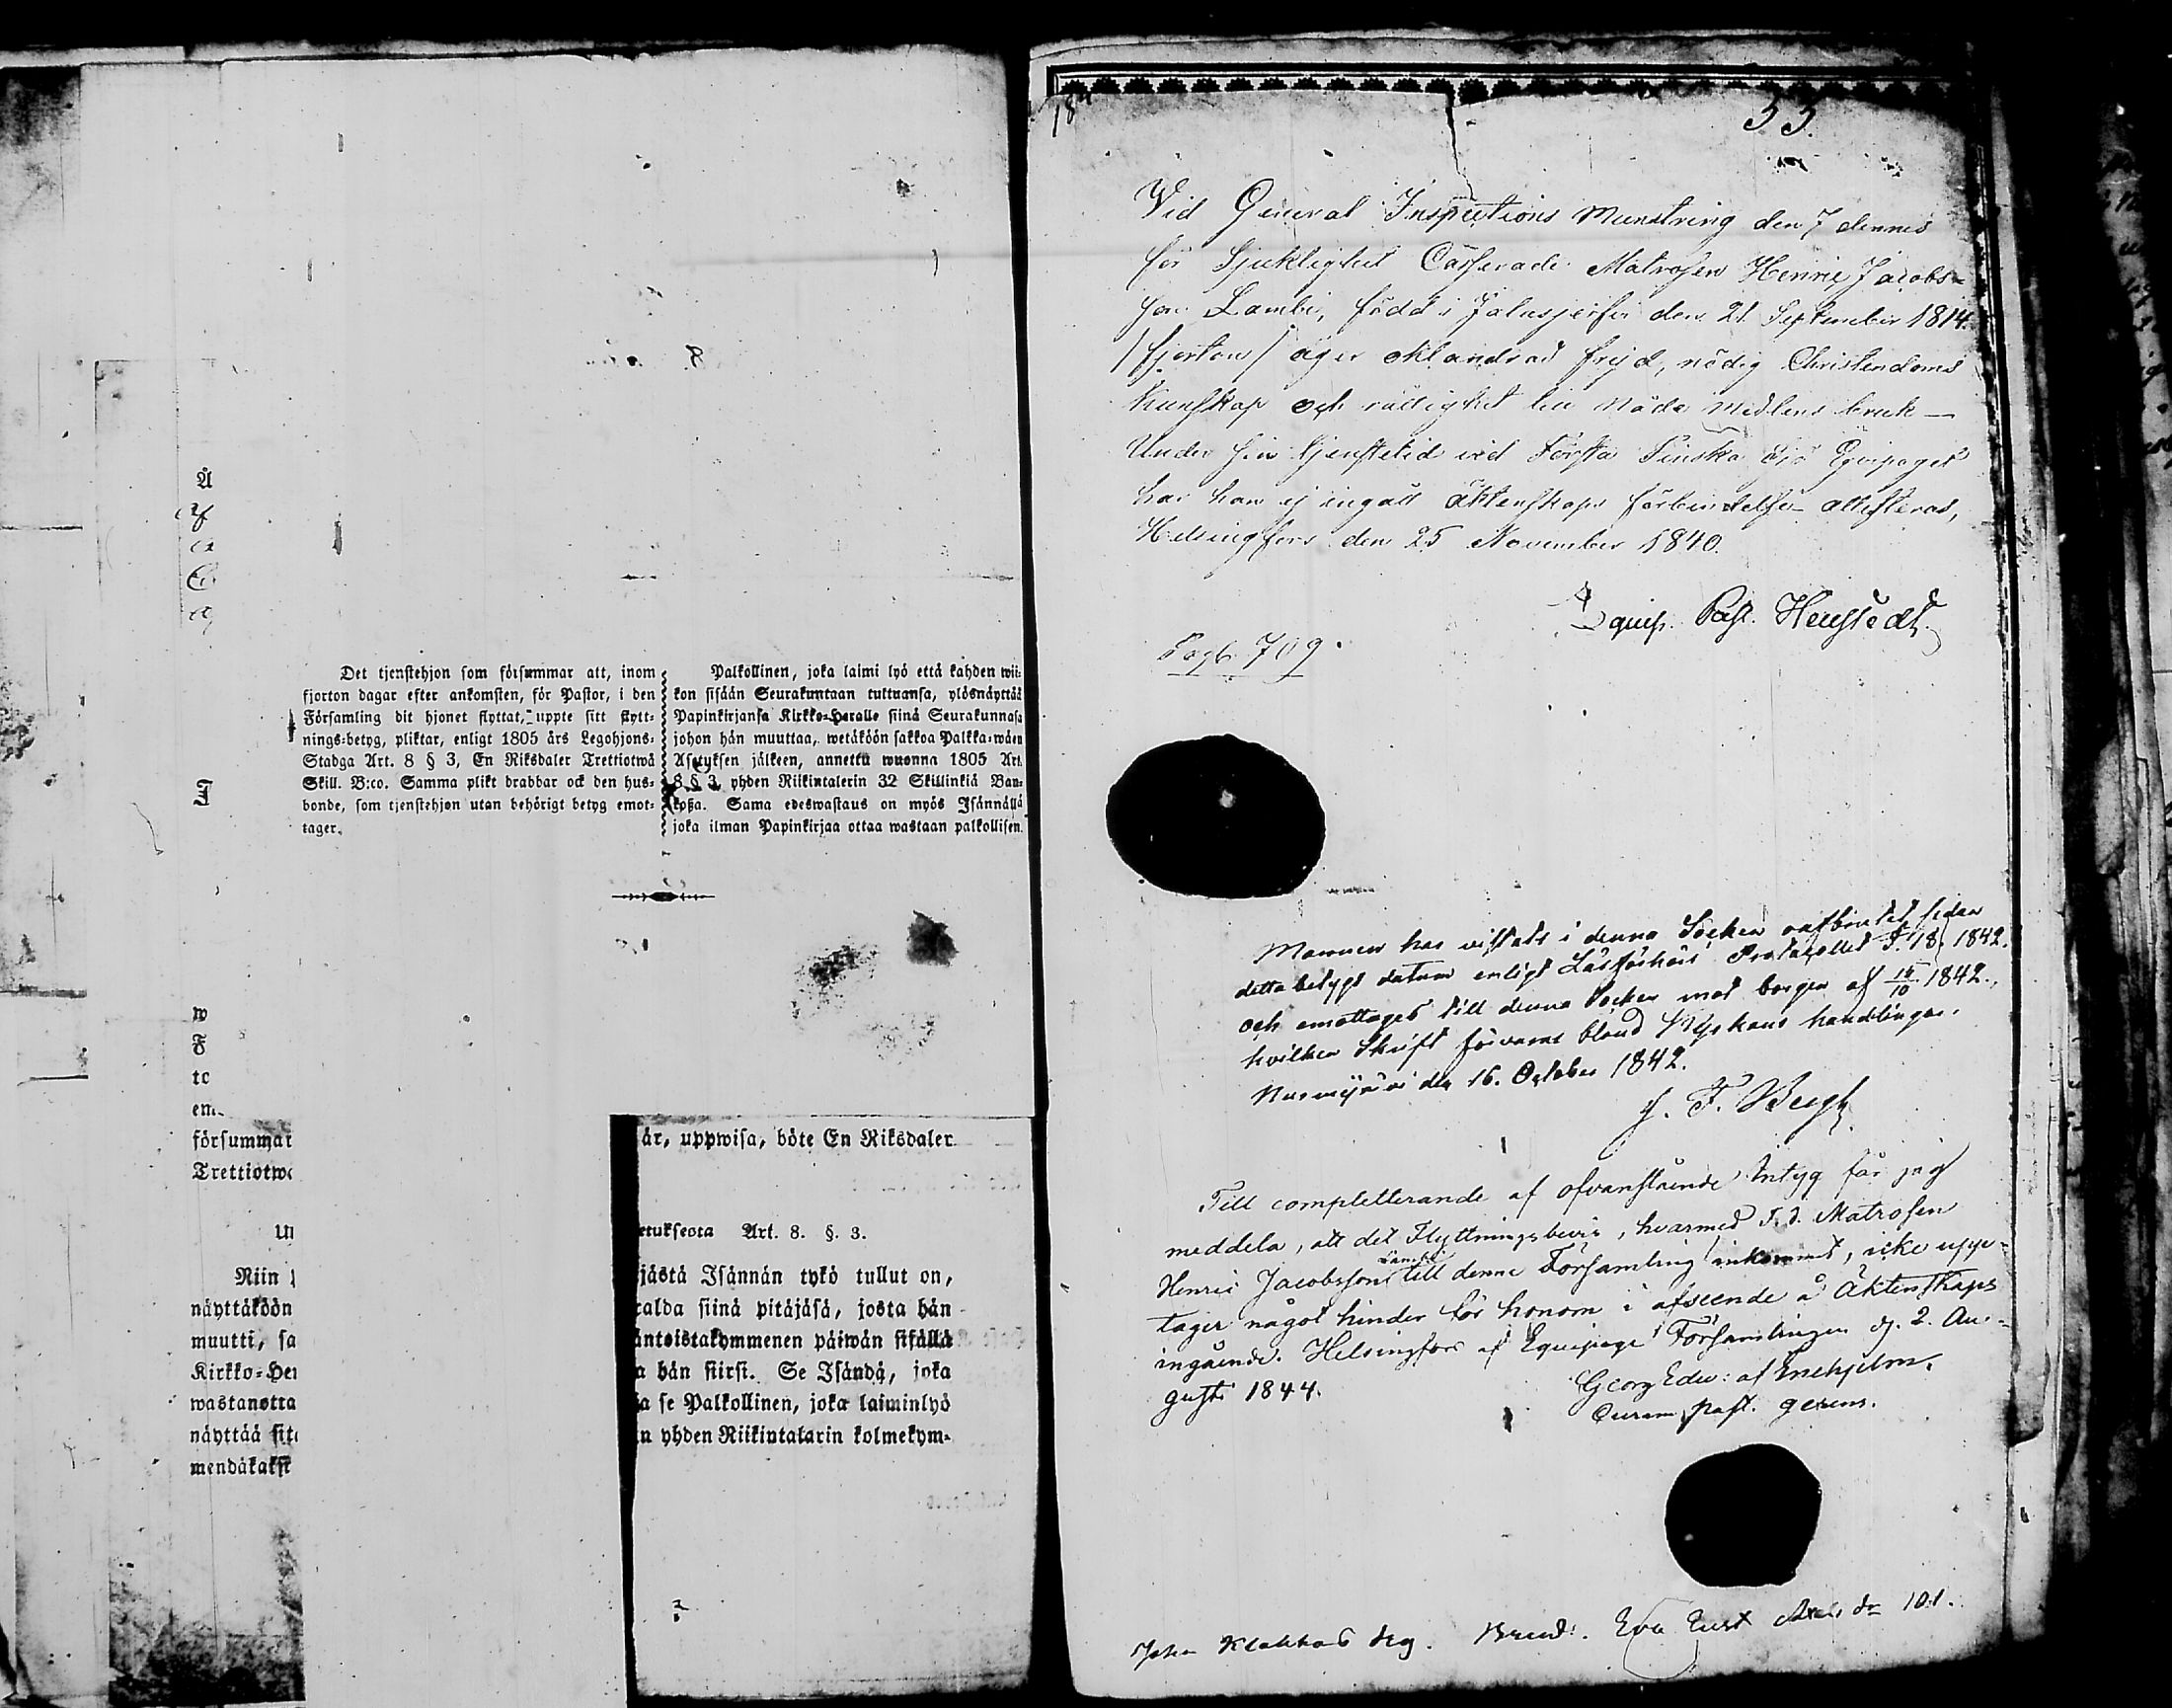 Å
Det tjenstehjon som försummar att, inom
fjorton dagar efter ankomsten, för Pastor, i den
Församling dit hjonet flyttat, uppte sitt flytt-
nings-betyg, pliktar, enligt 1805 års Legohjons-
Stadga Art. 8 § 3, En Riksdaler Trettiotwå
Skill. B:co. Samma plikt drabbar ock den hus-
bonde, som tjenstehjon utan behörigt betyg emot-
tager.
Palkollinen, joka laimi lyö että kahden wii-
kon sisään Seurakuntaan tultuansa, ylösnäyttää
Papinkirjansa Kirkko-Heralle siinä Seurakunnasa
johon hän muuttaa, wetäköön sakkoa Palkka-wäen
Asetyksen jälkeen, annettu wuonna 1805 Art.
8 § 3, yhden Riikintalerin 32 Skillinkiä Ban-
koßa. Sama edeswastaus on myös Isännällä
joka ilman Papinkirjaa ottaa wastaan palkollisen.
w
F
to
em
försummar
Trettiotw
Niin
näyttäköön
muutti, sa
Kirkko-Her
wastanotta
näyttää sit
mendäkaksi
är, uppwisa, böte En Riksdaler
etuksesta Art. 8. §. 3.
jästä Isännän tykö tullut on,
ralda siinä pitäjäsä, josta hän
äntoistakymmenen päiwän sisällä
a hän siirsi. Se Isändä, joka
ja se Palkollinen, joka laiminlyö
n yhden Riikintalarin kolmekym-
184
53.
Vid General Inspections Munstring den 7 dennes
för Sjuklighet Casserade Matrosen Henric Jacobs-
son Lambi, född i Jalasjerfvi den 21 September 1814
/fjorton/ äger oklandrad frejd, nödig Christendoms
Kunskap och rättighet till Nåde Medlens bruk —
Under sin tjenstetid vid Första Finska Sjö Equipaget
har han ej ingått äktenskaps förbindelse attesteras,
Helsingfors den 25 November 1840.
Equip. Past.
709.
Mannen har vistats i denna Socken oafbrutet sedan
detta betygs datum enligt Läsförhörs Protocollet 1842.
och emottages till denna Socken mot borgen af 14/10 1842.,
hvilken Skrift förvaras bland Kyrkans handlingar.
Nurmijärvi den 16. October 1842.
J. F. Bergh
Till completterande af ofvanstående Intyg får jag
meddela, att det Flyttningsbevis, hvarmed f. d. Matrosen
Henric Jacobsson Lambi till denne Församling inkommit, icke uppe-
tager något hinder för honom i afseende å Äktenskaps
ingående. Helsingfors af Equipage Församlingen d. 2. Au-
gusti 1844.
Georg Edv: af Enehjelm.
Curam past. gerens.
Brud: Eva
101.